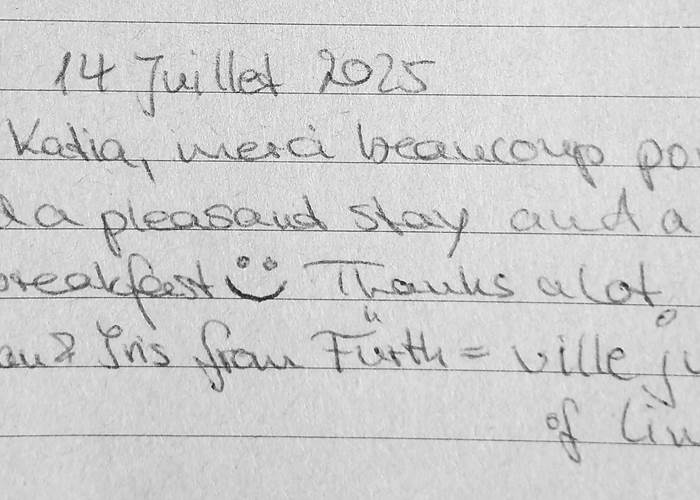 14 Juillet 2025
Katia, merci beaucoup po
a pleasand stay and a
breakfast Thanks a lot
Iris from Fürth = ville ju
of Lim